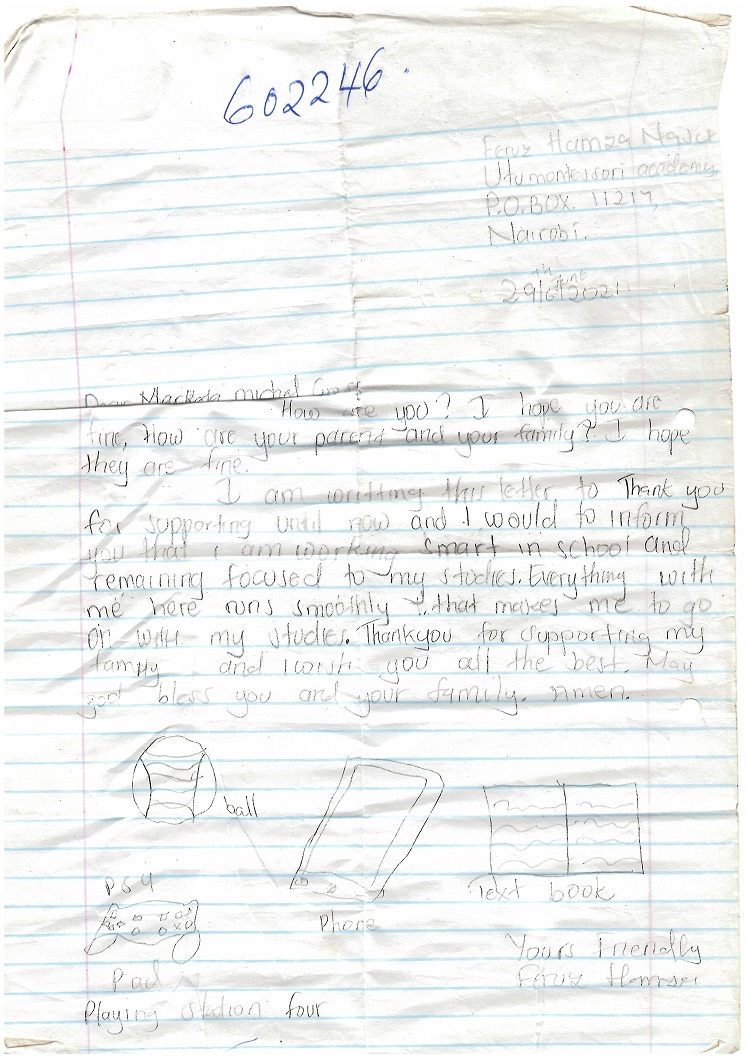 602246.
Feruz Hamza
Utumontessori academy,
P.O.BOX. 11217,
Nairobi.
29th/6/2021
Dear michal
How are you? I hope you are
fine, How are your parend and your family? I hope
they are fine.
I am writting this letter to Thank you
for supporting until now and I would to inform
you that i am working smart in school and
remaining focused to my studies. Everything with
me here runs smoothly that makes me to go
on with my studies. Thankyou for supporting my
family and I wish you all the best. May
god bless you and your family. Amen.
ball
Text book
PS4
Phone
Yours Friendly
Feruz Hamza
Pad
Playing station four